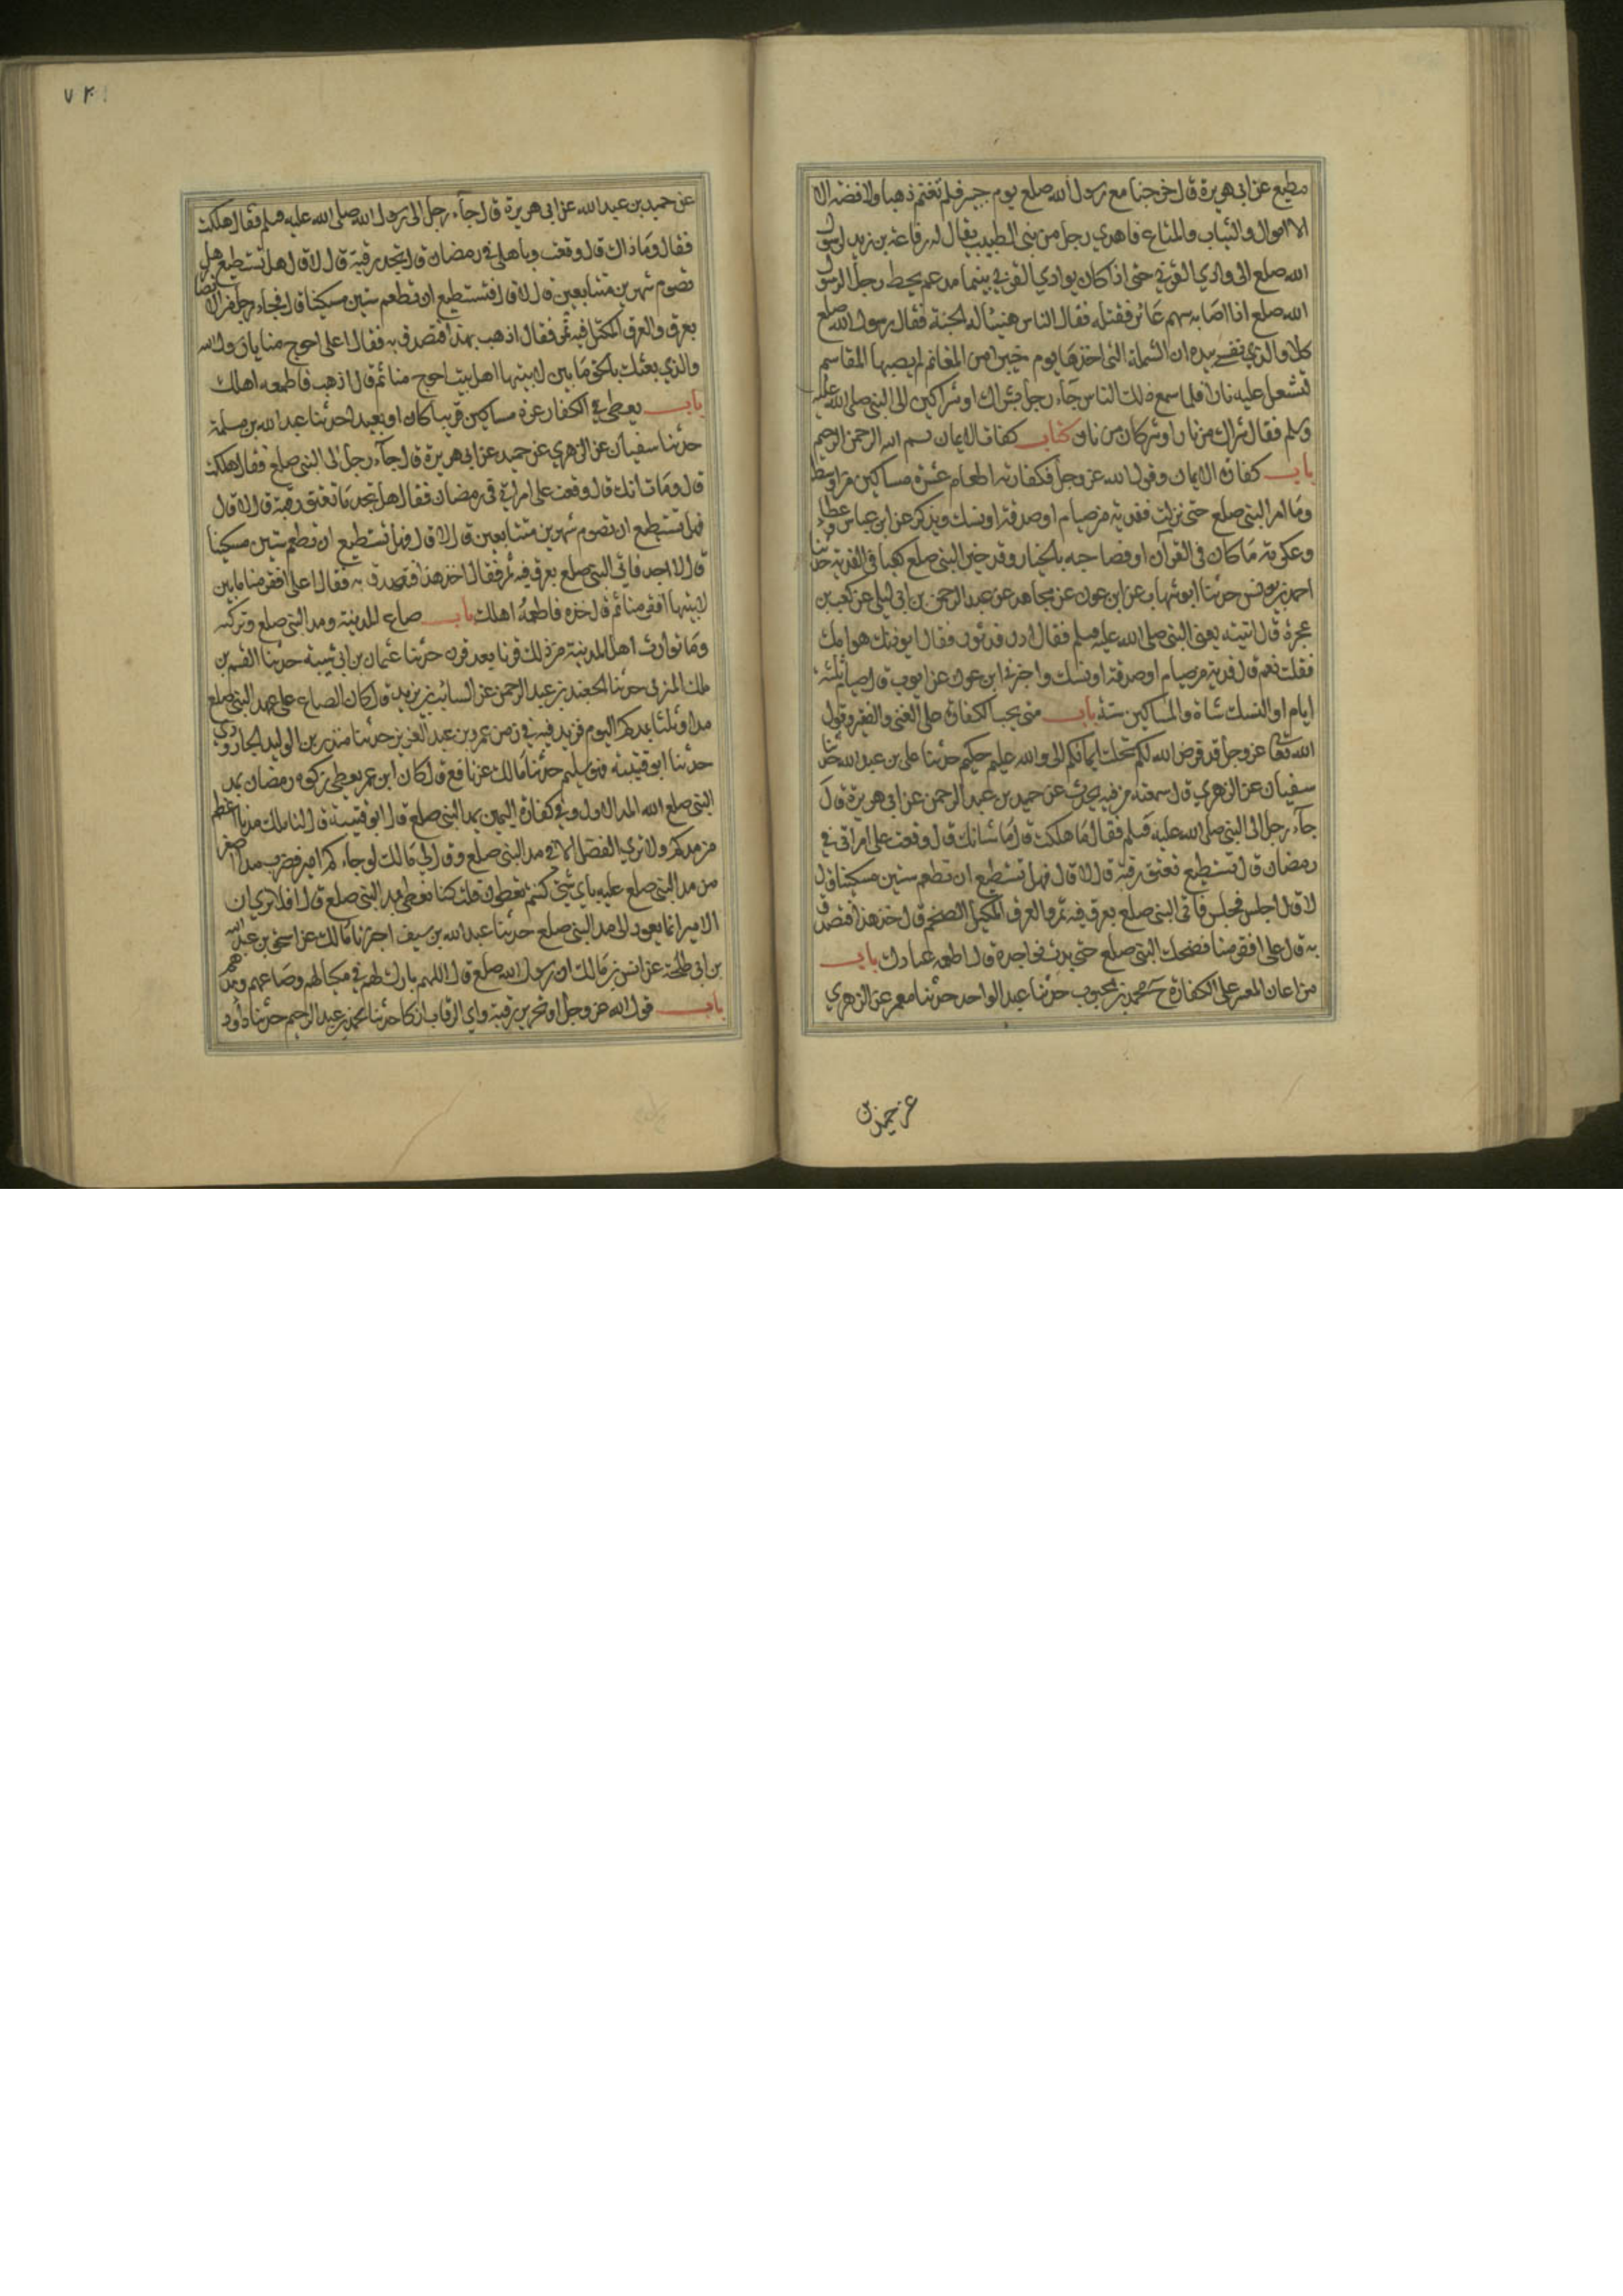 مطيع عن ابي هريرة قال خرجنا مع رسول الله صلعم يوم خيبر فلم نغنم ذهبا ولا فضة الا
الا اموال والثياب والمتاع فاهدي رجل من بني الطبيب يقال له رفاعة بن زيد لرسول
الله صلعم الى وادي القرى حتى اذا كان بوادي القرى بينما مدعم يحط رجل الرسول
الله صلعم اذا اصابه سهم عائر فقتله فقال الناس هنيئا له الجنة فقال رسول الله صلعم
كلا والذي نفسي بيده ان الشملة التي اخذها يوم خيبر من المغانم لم يصبها المقاسم
لتشعل عليه نارا فلما سمع ذلك الناس جاء رجل بشراك او شراكين الى النبي صلى الله عليه
وسلم فقال شراك من نار او شركان من نار كتاب كفارة الايمان بسم الله الرحمن الرحيم
باب كفارة الايمان وقول الله عز وجل فكفارته اطعام عشرة مساكين من اوسط
وما امر النبي صلعم حتى نزلت ففدية من صيام او صدقة او نسك ويذكر عن ابن عباس وعطاء
وعكرمة ما كان في القرآن او فصاحبه بالخيار وقد خير النبي صلعم كعبا في الفدية حدثنا
احمد بن يونس حدثنا ابو شهاب عن ابن عون عن مجاهد عن عبد الرحمن بن ابي ليلى عن كعب بن
عجرة قال اتيته يعني النبي صلى الله عليه وسلم فقال ادن فدنوت فقال ايوذيك هوامك
فقلت نعم قال فدية من صيام او صدقة او نسك واخبرني ابن عون عن ايوب قال صيام ثلثة
ايام او النسك شاة والمساكين ستة باب متى يجب الكفارة على الغني والفقير وقول
الله تعا عز وجل قد فرض الله لكم تحلت ايمانكم الى والله عليم حكيم حدثنا علي بن عبد الله حدثنا
سفيان عن الزهري قال سمعته من فيه يحدث عن حميد بن عبد الرحمن عن ابي هريرة قال
جاء رجل الى النبي صلى الله عليه وسلم فقال ما هلكت قال ما شانك قال وقعت على امراتي في
رمضان قال تستطيع تعتق رقبة قال لا قال فهل تستطيع ان تطعم ستين مسكينا قال
لا قال اجلس فجلس فاتى النبي صلعم بعرق فيه تمر والعرق المكيل الضخم قال خذ هذا فتصدق
به قال على افقر منا فضحك النبي صلعم حتى بدت نواجذه قال اطعمه عيالك باب
من اعان المعسر على الكفارة ح محمد بن محبوب حدثنا عبد الواحد حدثنا معمر عن الزهري
عن حميد بن
عن حميد بن عبد الله عن ابي هريرة قال جاء رجل الى رسول الله صلى الله عليه وسلم فقال هلكت
فقال وما ذاك قال وقعت وباهلي في رمضان قال تجد رقبة قال لا قال هل تستطيع هل
تصوم شهرين متتابعين قال لا قال فتستطيع ان تطعم ستين مسكينا قال فجاء رجل من الانصار
بعرق والعرق المكتل فيه تمر فقال اذهب بهذا فتصدق به فقال اعلى احوج منا يا رسول الله
والذي بعثك بالحق ما بين لابيتها اهل بيت احوج منا ثم قال اذهب فاطعمه اهلك
باب يعطي في الكفار عشرة مساكين قريبا كان او بعيدا حدثنا عبد الله بن مسلمة
حدثنا سفيان عن الزهري عن حميد عن ابي هريرة قال جاء رجل الى النبي صلعم فقال هلكت
قال وما شانك قال وقعت على امراتي في رمضان فقال هل تجد ما تعتق رقبة قال لا قال
فهل تستطيع ان تصوم شهرين متتابعين قال لا قال فهل تستطيع ان تطعم ستين مسكينا
قال لا اجد فاتي النبي صلعم بعرق فيه تمر فقال خذ هذا فتصدق به فقال اعلى افقر منا ما بين
لابيتها افقر منا ثم قال خذه فاطعمه اهلك باب صاع المدينة ومد النبي صلعم وبركته
وما توارث اهل المدينة من ذلك قرنا بعد قرن حدثنا عثمان بن ابي شيبة حدثنا القسم بن
ملك المزني حدثنا الجعيد بن عبد الرحمن عن السائب بن يزيد قال كان الصاع على عهد النبي صلعم
مدا وثلثا بمدكم اليوم فزيد فيه في زمن عمر بن عبد العزيز حدثنا منذر بن الوليد الجارودي
حدثنا ابو قتيبة وهو سليم حدثنا مالك عن نافع قال كان ابن عمر يعطي زكوة رمضان بمد
النبي صلع الله المد الاول وفي كفارة اليمين بمد النبي صلعم قال ابو قتيبة قال لنا ملك مدنا اعظم
من مدكم ولا نرى الفضل الا في مد النبي صلعم وقال لي مالك لو جاءكم امير فضرب مدا اصغر
من مد النبي صلعم عليه باي شيء كنتم تعطون قلت كنا نعطي بمد النبي صلعم قال افلا ترى ان
الامر انما يعود الى مد النبي صلعم حدثنا عبد الله بن سيف اخبرنا مالك عن اسحق بن عبد الله
بن ابي طلحة عن انس بن مالك ان رسول الله صلعم قال اللهم بارك لهم في مكيالهم وصاعهم ومدهم
باب قول الله عز وجل او تحرير رقبة واي الرقاب ازكا حدثنا محمد بن عبد الرحيم حدثنا داود